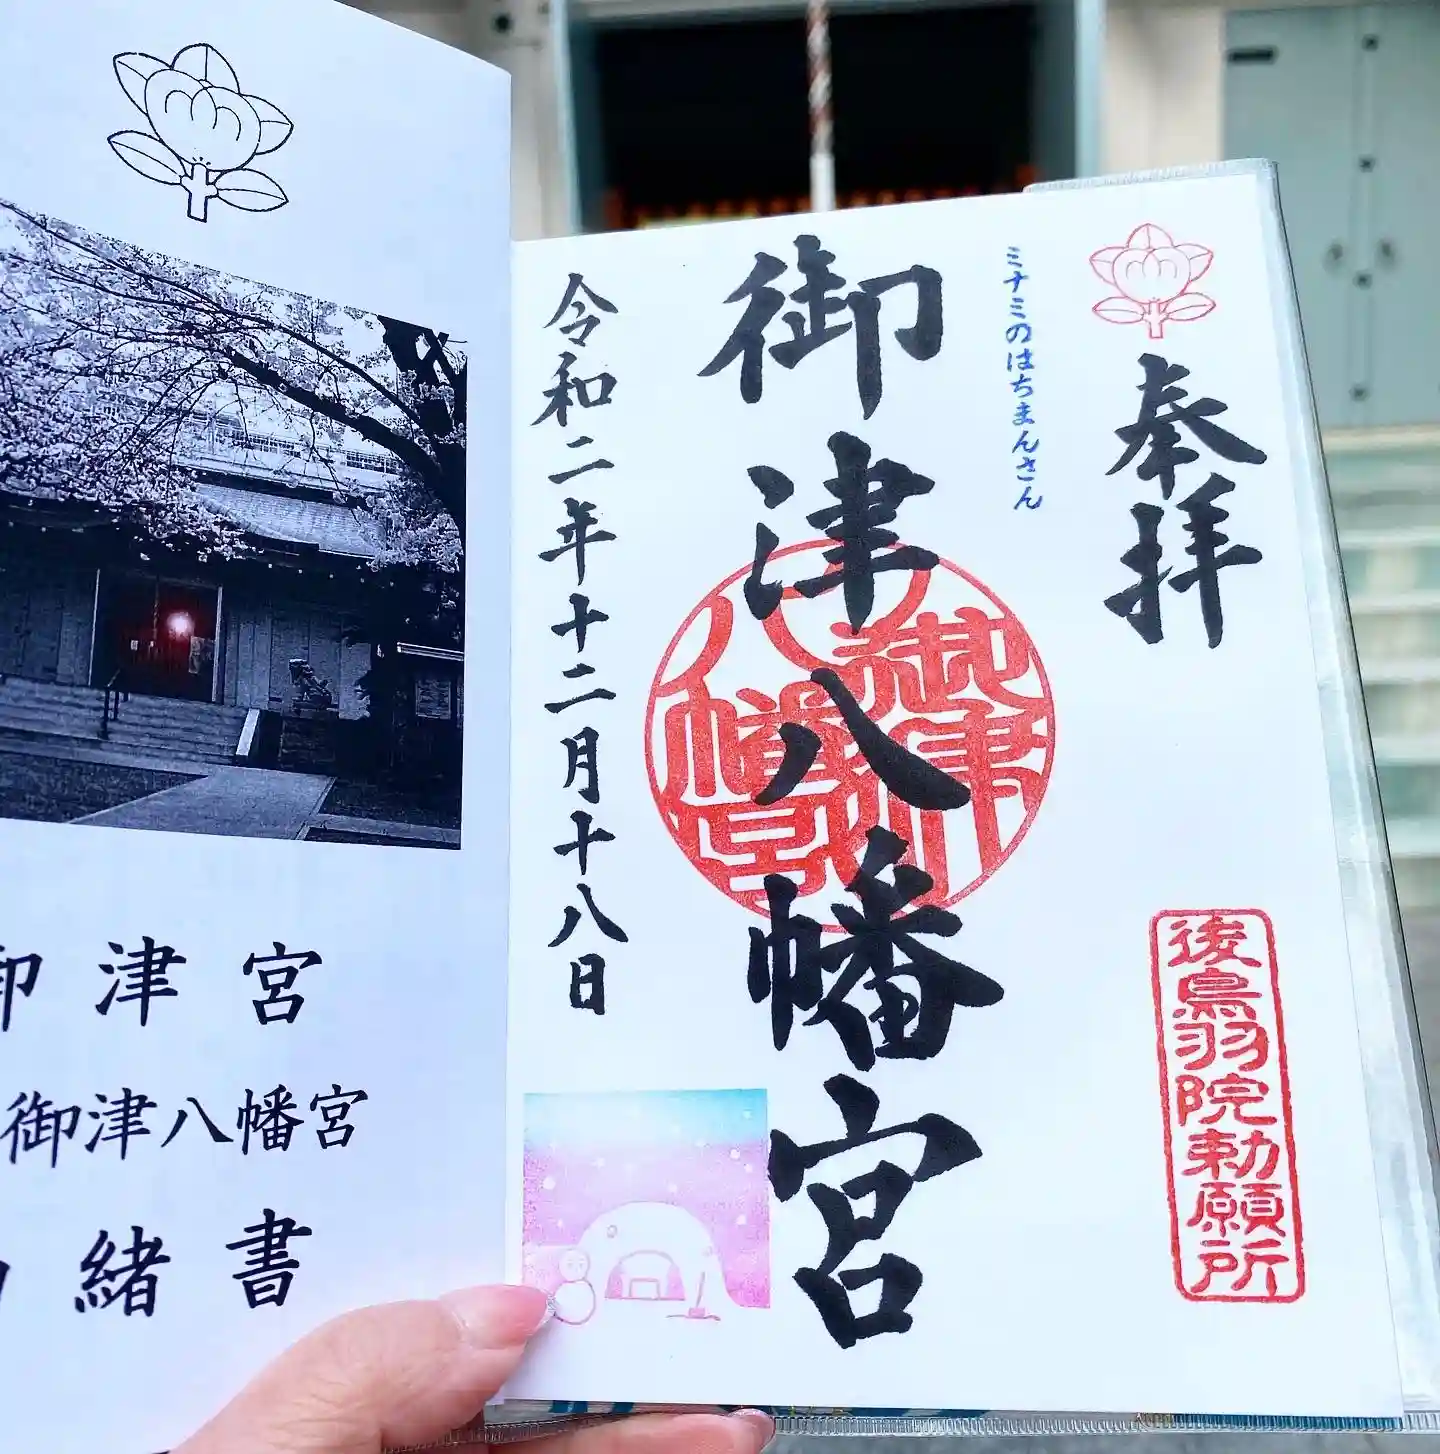 奉拝
後鳥羽院勅願所
ミナミのはちまんさん
御津八幡宮
御津八幡宮
令和二年十二月十八日
御津宮
御津八幡宮
緒書